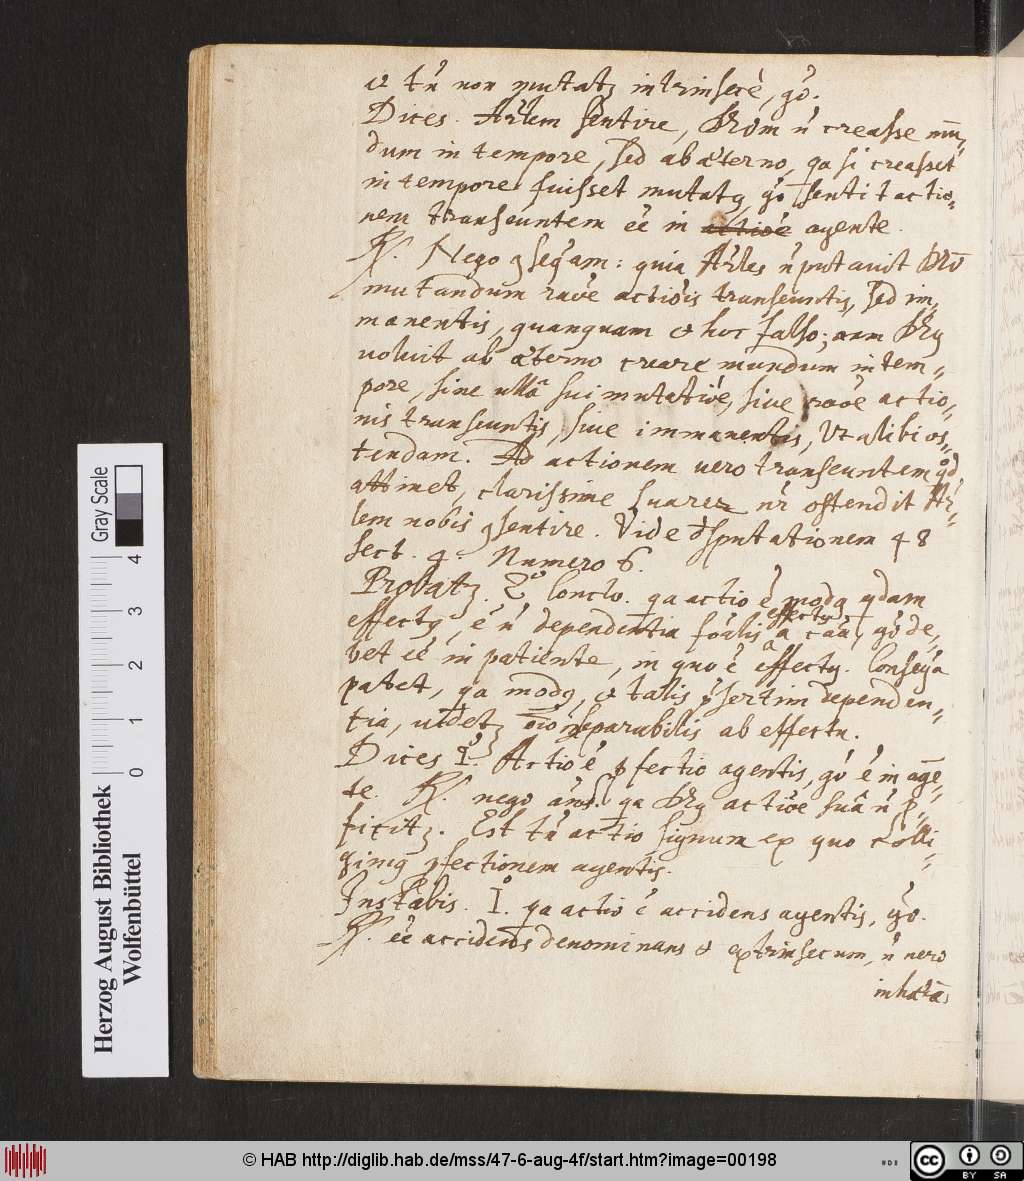 et tn̄ non mutatꝫ intrinsecè, gō.
Dices. Arl̃em sentire, Deũm ñ creasse mũ„
dum in tempore, sed ab æterno, qa si creasset
in tempore fuisset mutatꝰ, gō sentit actio„
nem transeuntem eē in actiōe agente.
R. Nego ꝯseqãm: quia Arl̃es ñ putauit Deũ
mutandum raōe actiōis transeuntis, sed im„
manentis, quanquam et hoc falso; nam Deꝰ
voluit ab æterno creare mundum in tem„
pore, sine ullâ sui mutatiōe, sive raōe actio„
nis transeuntis, sive immanentis, Ut alibi os„
tendam. Ad actionem vero transeuntem qd
attinet, clarissime Suarez nr̄ ostendit Ar„
lem nobis ꝯsentire. Vide dsputationem 48
sect. 4. Numero 6.
Probatꝫ. 2º Conclo. qa actio ē modꝰ qdam
effectꝰ, ē ñ dependentia foālis effectꝰ a caā, gō de„
bet eē in patiente, in quo ē effectꝰ. Conseqã
patet, qa modꝰ, et talis p̃sertim dependen„
tia, uidetꝫ oīo inseparabilis ab effectu.
Dices 1º. Actio ē ꝑfectio agentis, gō ē in agē„
te. R. nego ãns. qa Deꝰ actiōe suâ ñ ꝑ„
ficitꝫ. Est tn̄ actio signum ex quo colli„
gimꝰ ꝑfectionem agentis.
Instabis. 1º. qa actio ē accidens agentis, gō.
R. eē accidens denominans et extrinsecum, ñ vero
inhæ
Herzog August Bibliothek
Wolfenbüttel
Gray Scale
0 1 2 3 4
© HAB http://diglib.hab.de/mss/47-6-aug-4f/start.htm?image=00198
cc BY SA